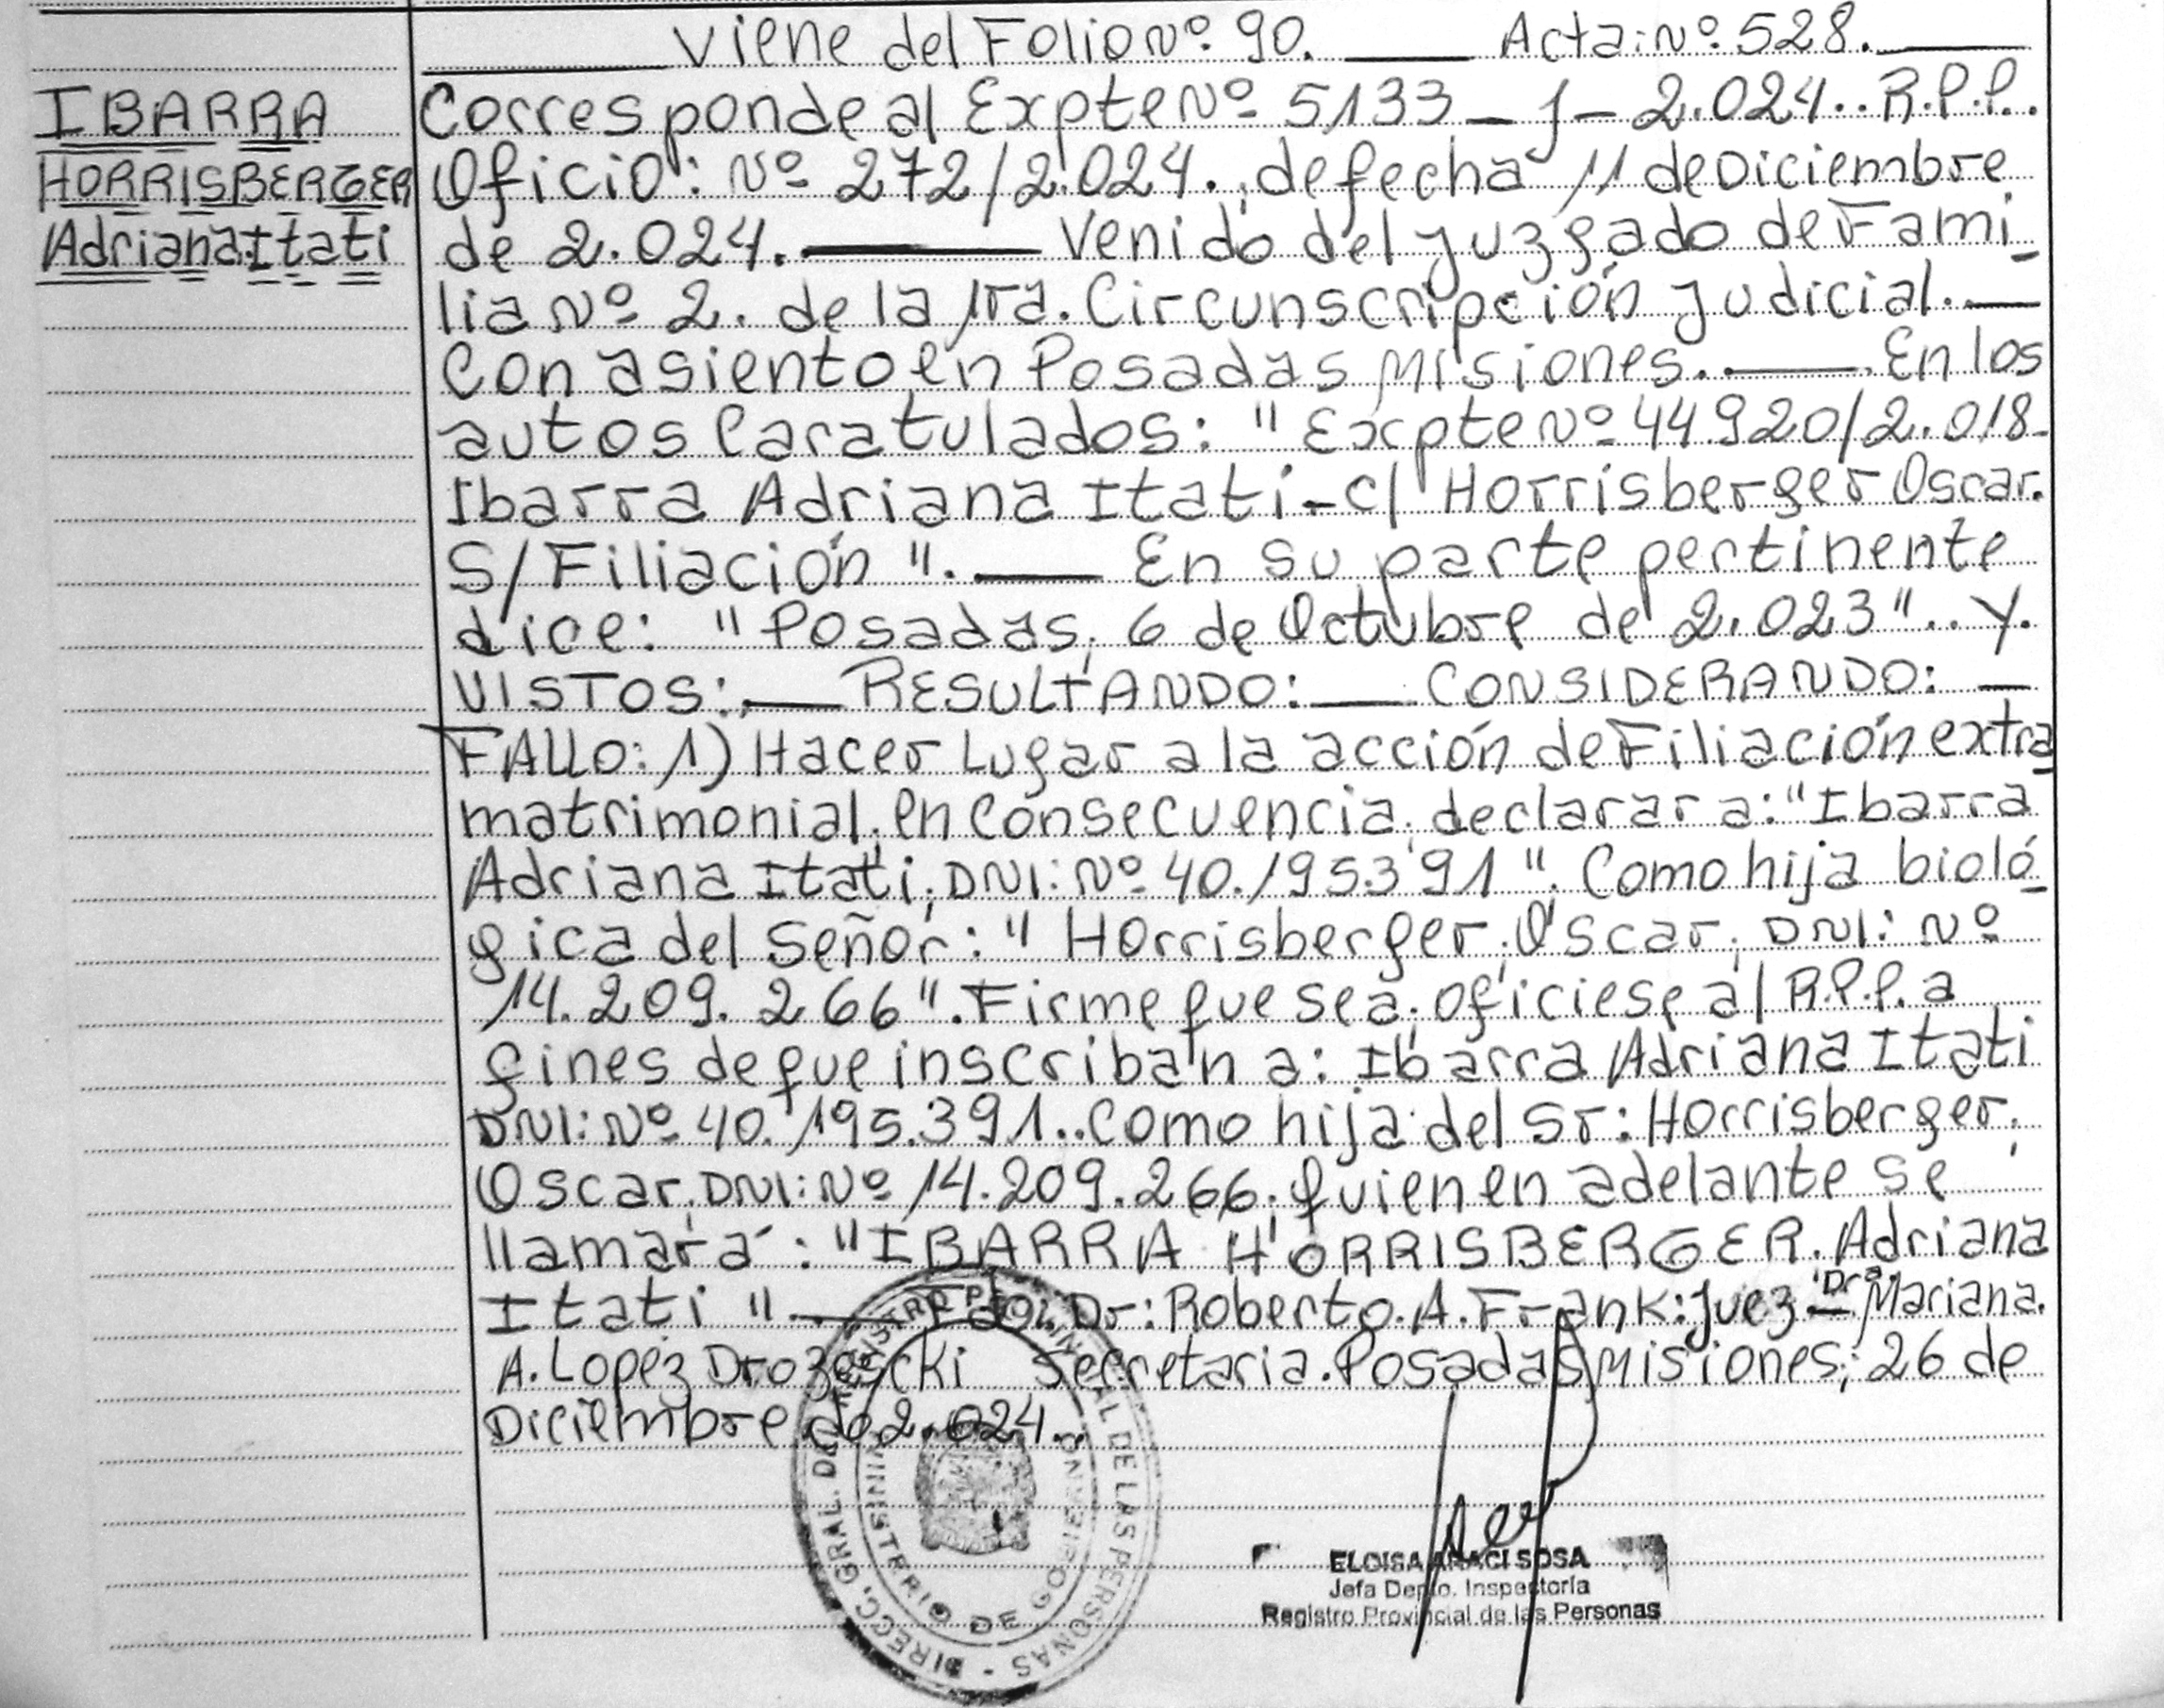 Viene del Folio Nº 90. Acta: Nº 528.
IBARRA
HORRISBERGER
Adriana Itati
Corresponde al Expte Nº 5133 - J - 2.024.. R.P.P.
Oficio: Nº 272/2.024., de fecha 11 de Diciembre
de 2.024. Venido del Juzgado de Fami-
lia Nº 2. de la 1ra. Circunscripción Judicial.
Con asiento en Posadas Misiones. En los
autos Caratulados: "Expte Nº 44920/2.018-
Ibarra Adriana Itati - c/ Horrisberger Oscar.
S/Filiación". En su parte pertinente
dice: "Posadas, 6 de Octubre de 2.023".. Y.
VISTOS: RESULTANDO: CONSIDERANDO:
FALLO: 1) Hacer Lugar a la acción de Filiación extra
matrimonial, en Consecuencia, declarar a: "Ibarra
Adriana Itati, DNI: Nº 40.195.391". Como hija bioló-
gica del Señor: "Horrisberger, Oscar, DNI: Nº
14.209.266". Firme que sea, oficiese al R.P.P. a
fines de que inscriban a: Ibarra Adriana Itati
DNI: Nº 40.195.391.. Como hija del Sr: Horrisberger,
Oscar. DNI: Nº 14.209.266, quien en adelante se
llamará: "IBARRA HORRISBERGER. Adriana
Itati". Fdo. Dr: Roberto. A. Frank: Juez - Dra. Mariana.
A. Lopez Secretaria. Posadas Misiones, 26 de
Diciembre de 2.024..
DIRECC. GRAL. DEL REGISTRO PROVINCIAL DE LAS PERSONAS -
MINISTERIO DE GOBIERNO
ELOISA ARACI SOSA
Jefa Depto. Inspectoría
Registro Provincial de las Personas